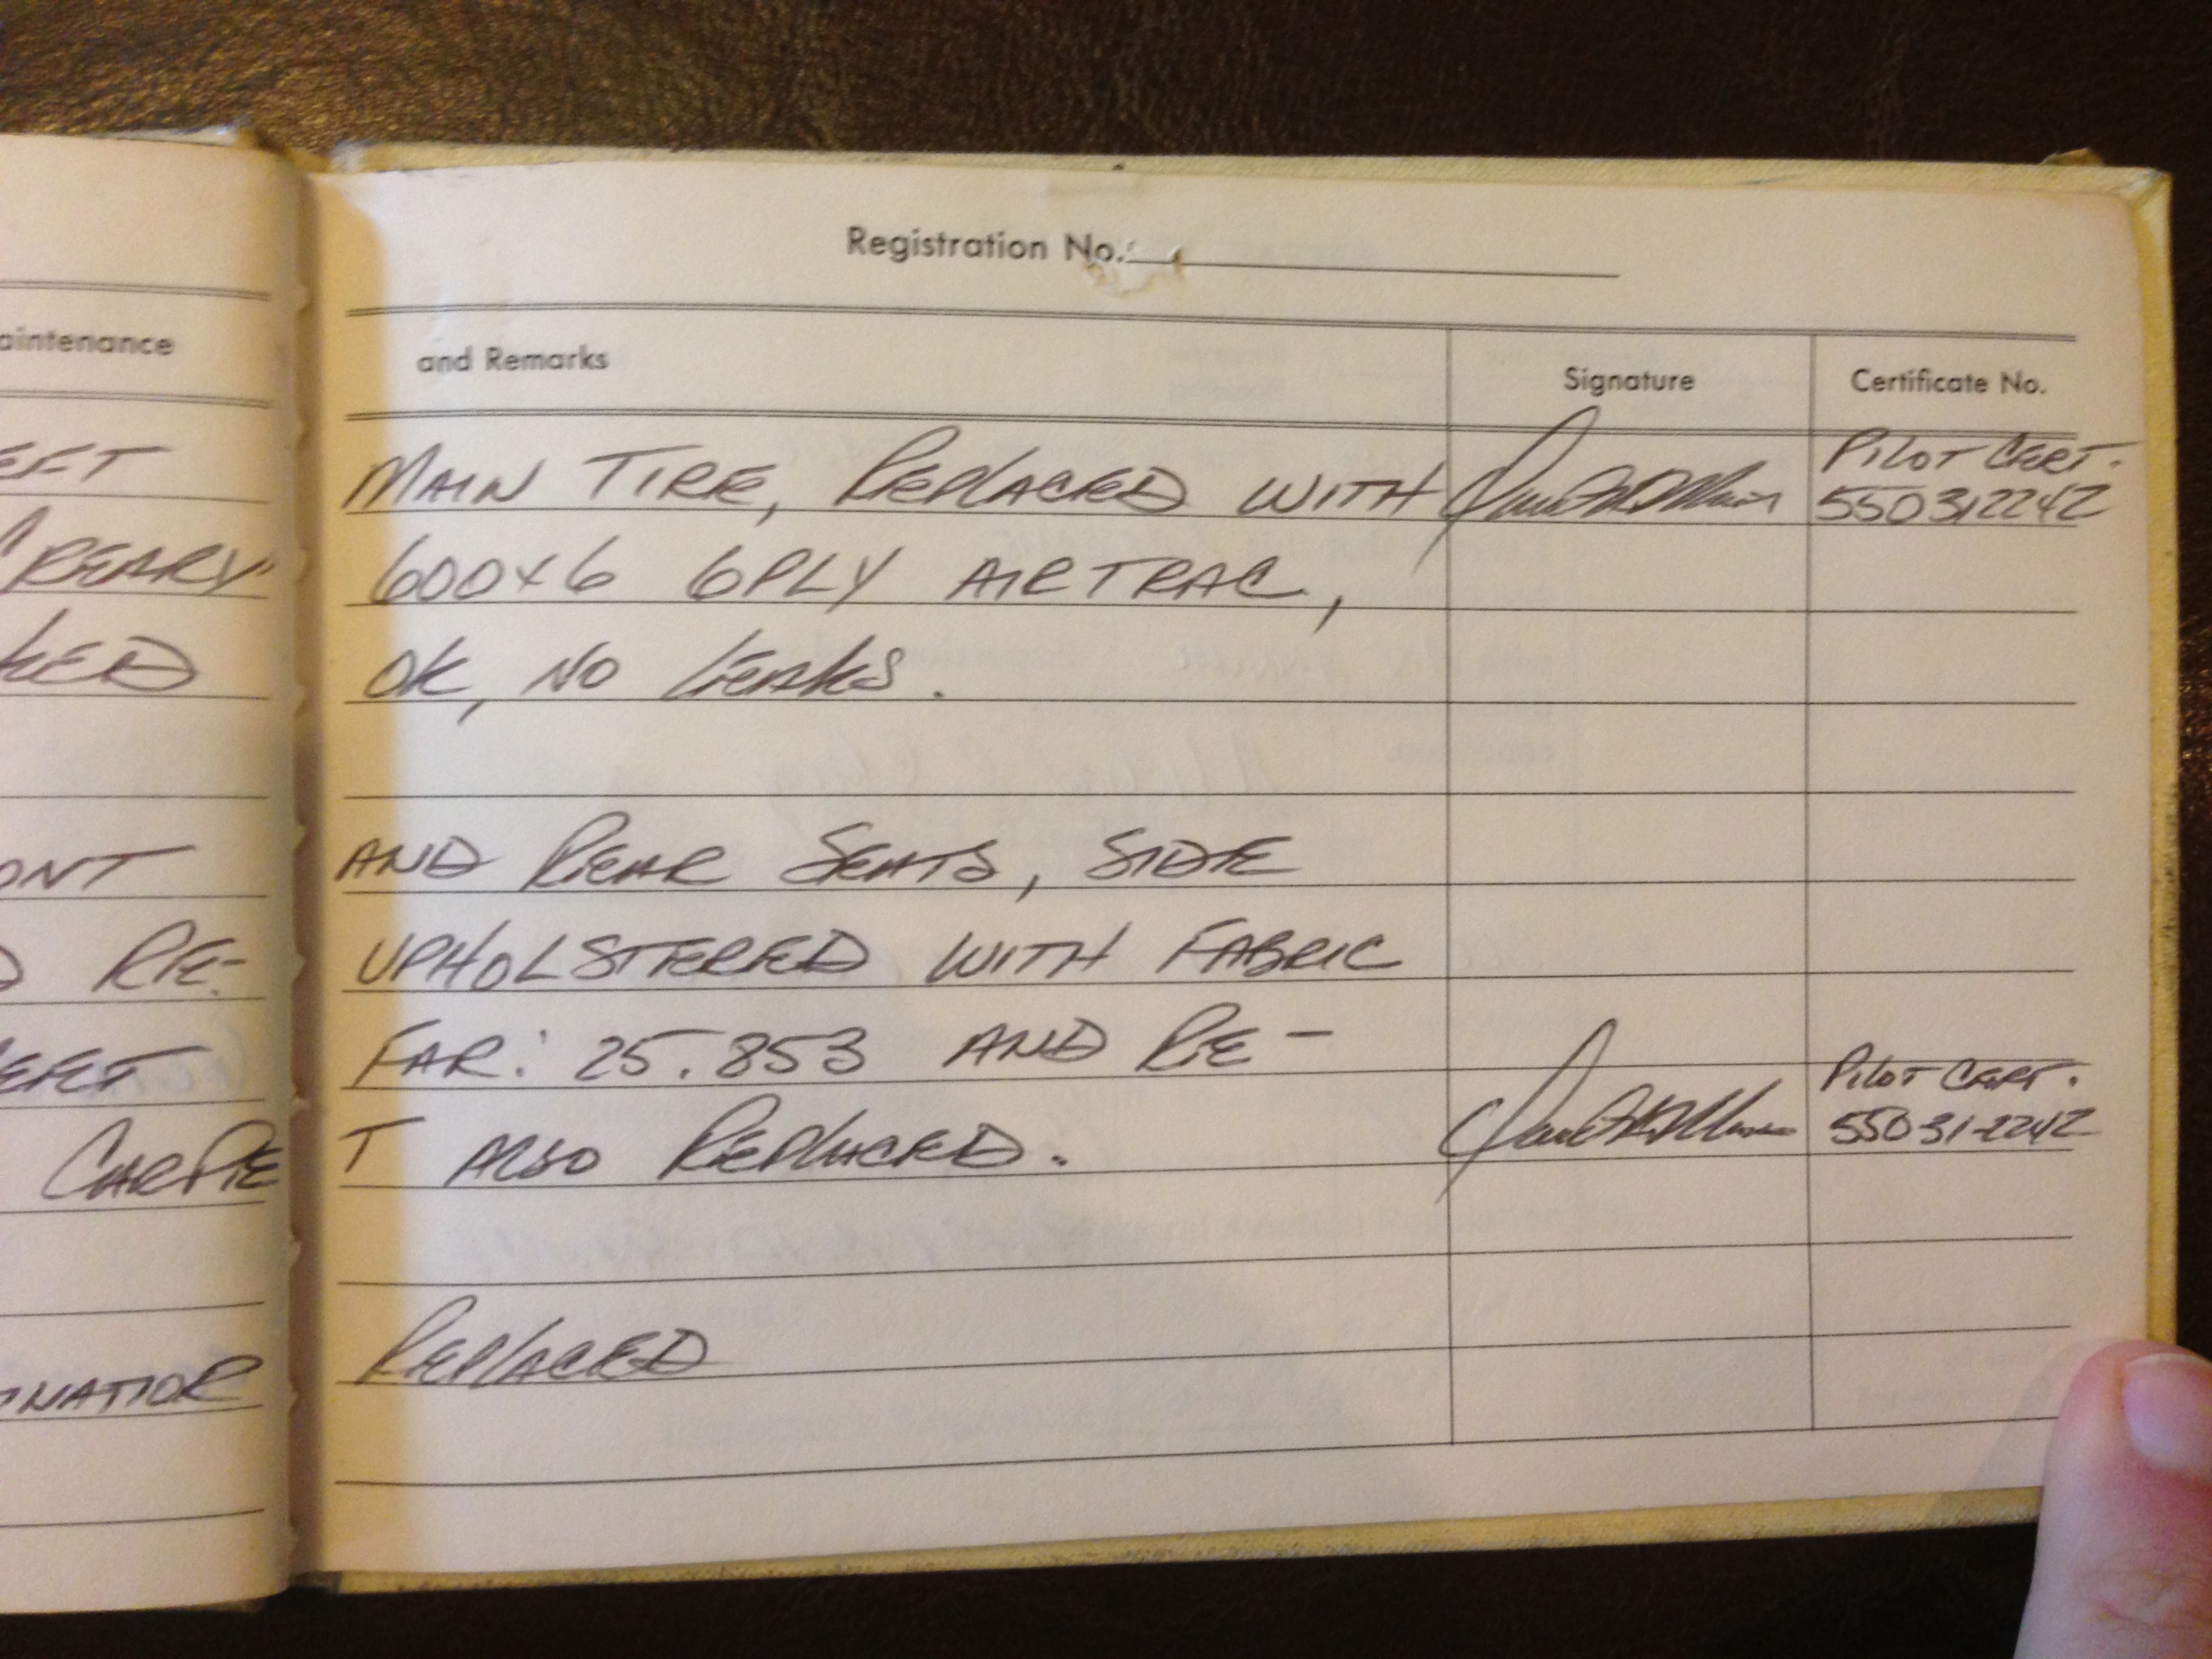 Registration No.:
aintenance
and Remarks
Signature
Certificate No.
EFT
MAIN TIRE, REPLACED WITH
PILOT CERT.
550312242
CREARY
600x6 6PLY AIRTRAC,
KED
OK, NO LEAKS.
ONT
AND REAR SEATS, SIDE
D RE-
UPHOLSTERED WITH FABRIC
EFET
FAR: 25.853 AND RE-
PILOT CERT.
55031-2242
CARPE
T ALSO REPLACED.
INATIOR
REPLACED